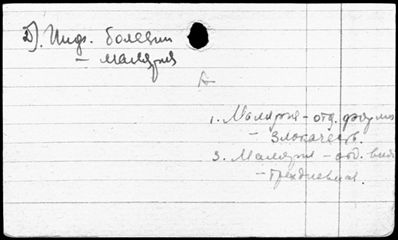 2). Инф. болезни
– малярия
1. Малярия – отд. формы
– злокачеств.
3. Малярия – отд. виды
– трехдневная.